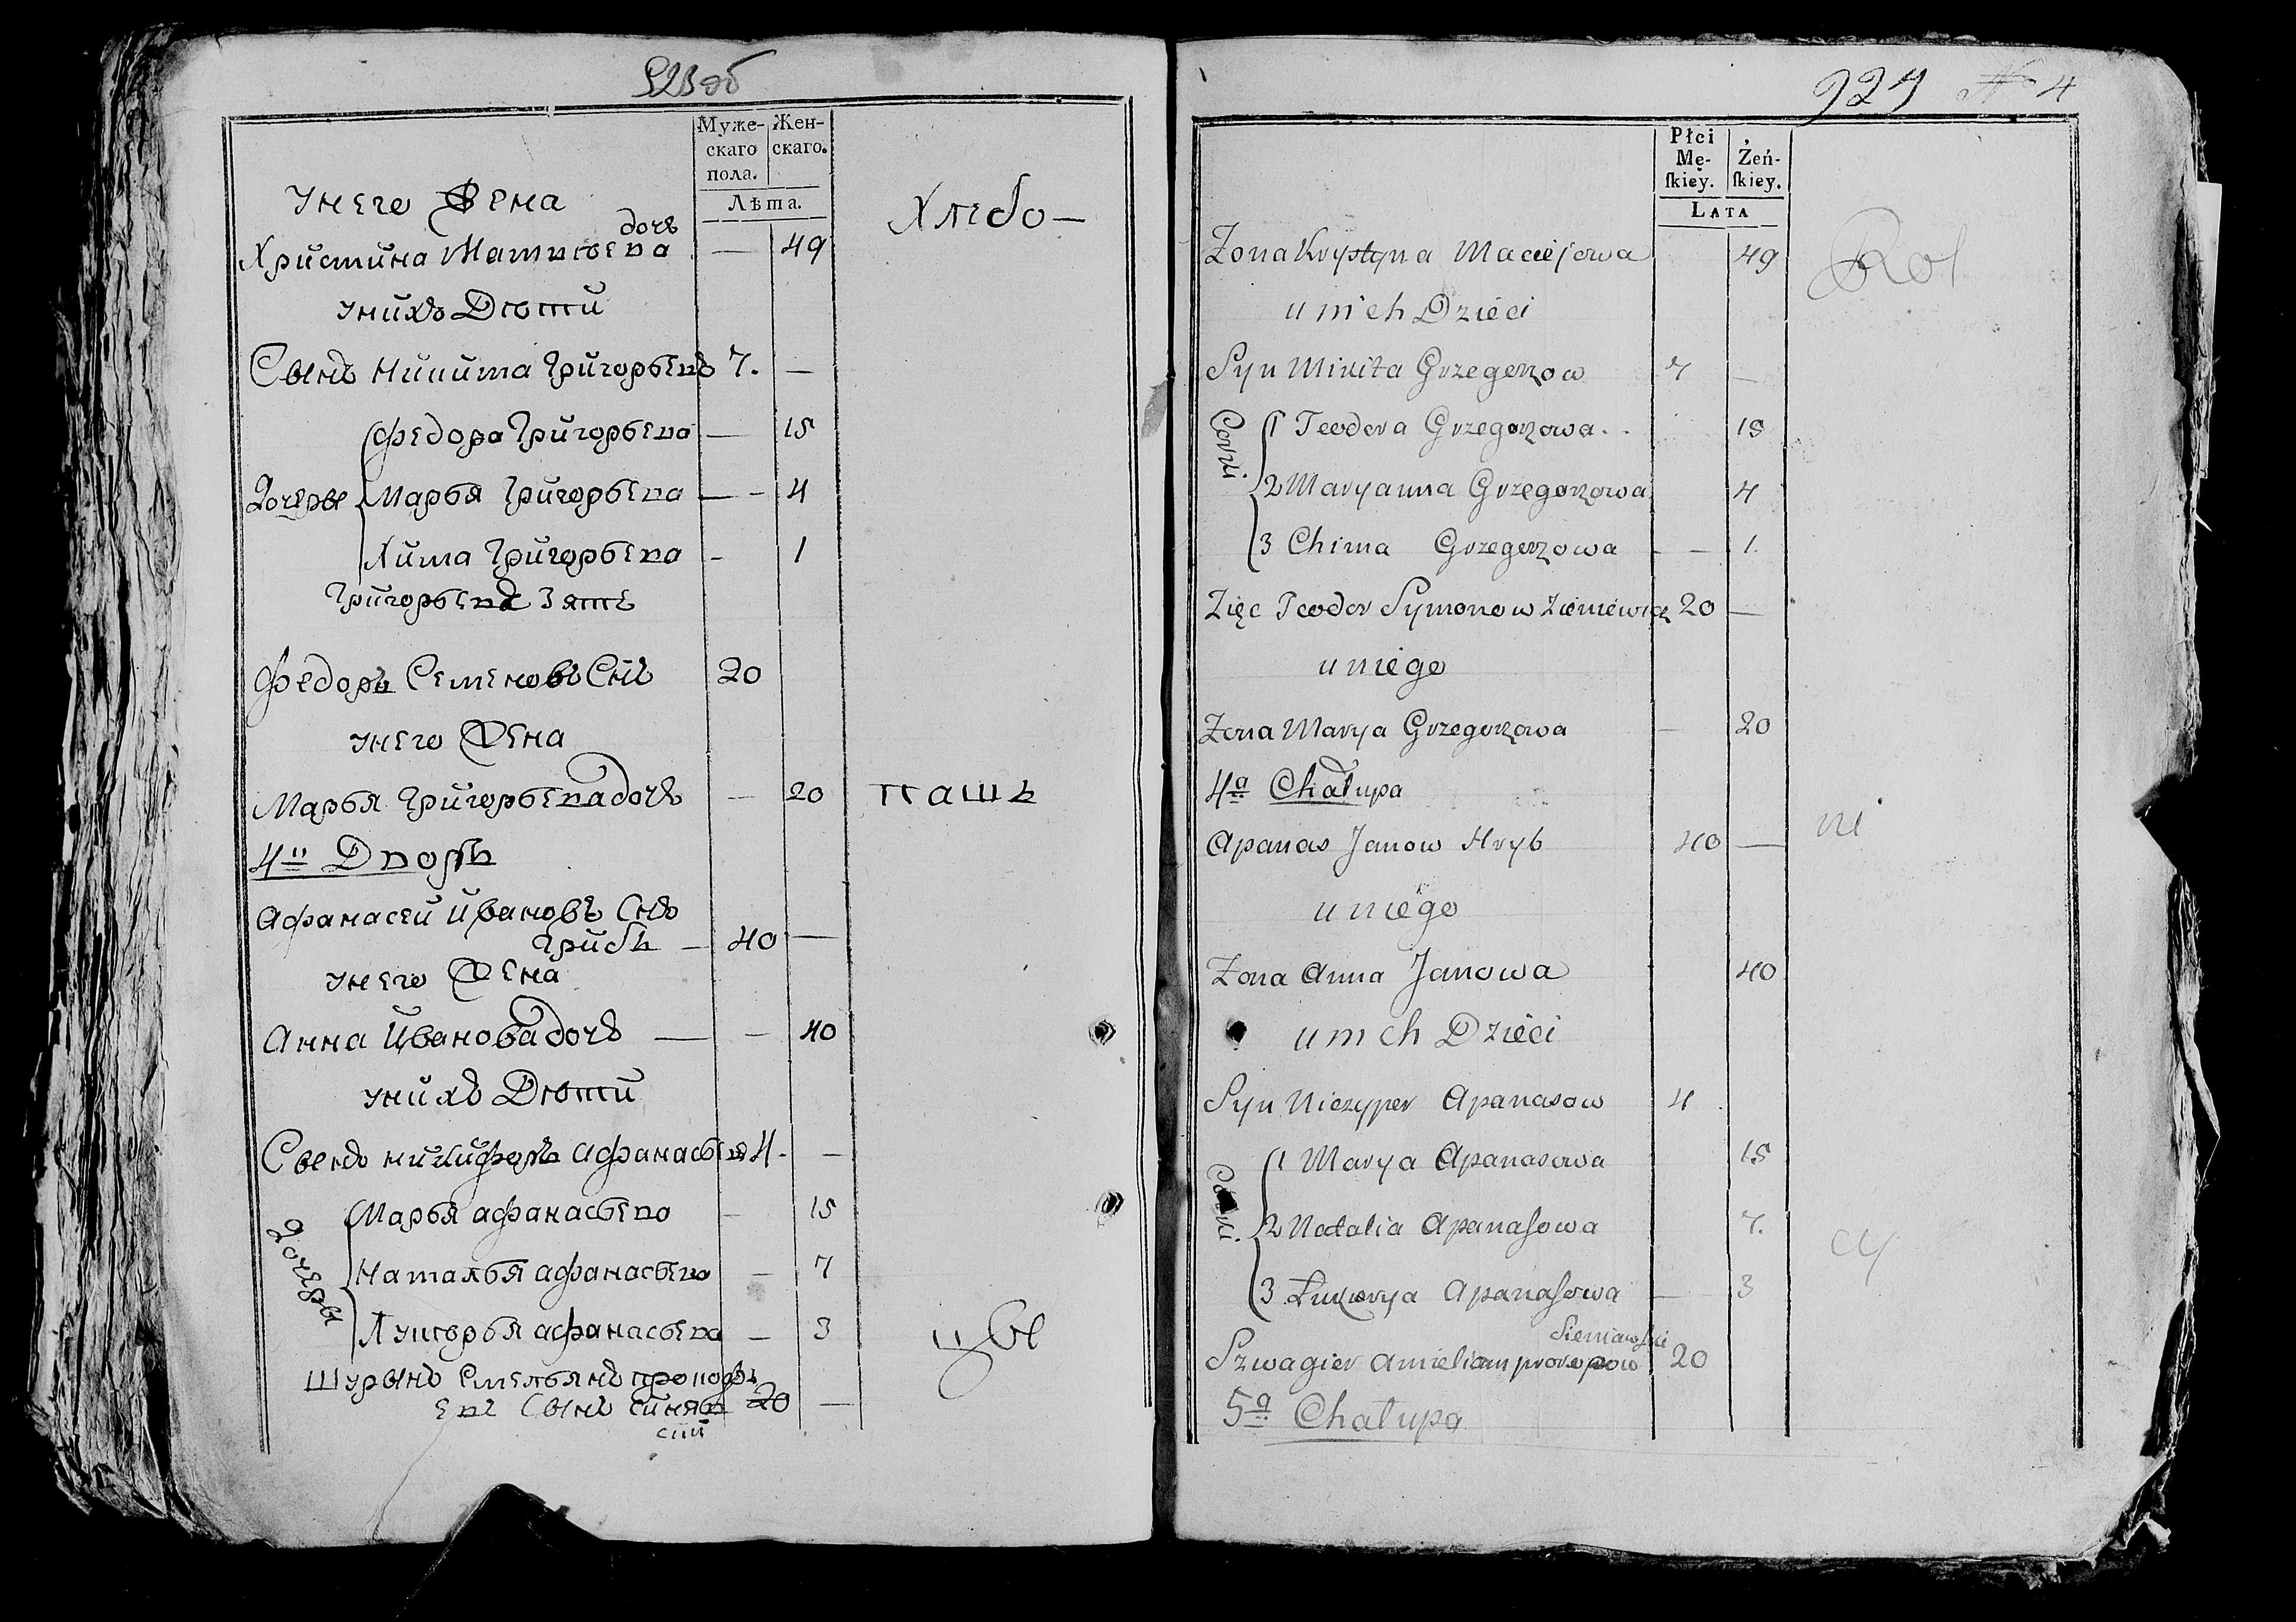 923 об
Муже-
скаго
пола.
Жен-
скаго.
Лѣта.
Унего Жена
Христина Матвѣева дочь — 49
Хлебо—
Унихъ Дѣти
Сынъ Никита Григорьевъ 7. —
Федора Григорьева — 15
Дочеры Марья Григорьева — - 4
Хима Григорьева - 1
Григорьевъ Зять
Федоръ Семеновъ Снъ 20
Унего Жена
Марья Григорьева дочь — 20
паше
4й Дворъ
Афанасей Ивановъ Снъ
Грибъ — 40 —
Унего Жена
Анна Иванова дочь — — 40
Унихъ Дѣти
Сынъ Никифоръ Афанасьевъ 4. —
Марья Афанасьева — 15
Дочеры
Наталья Афанасьева — 7
Лукерья Афанасьева — 3
цы
Шуринъ Емельянъ Прокофь
евъ Сынъ Синяв 20 —
ский
924 № 4
Płci
Mę-
skiey.
Żeń-
skiey.
Lata
Zona Krystyna Maciejowa 49
Rol
u nich Dzieci
Syn Mikita Grzegorzow 7 —
Corki
1 Teodora Grzegorzowa . . 15
2 Maryanna Grzegorzowa 4
3 Chima Grzegorzowa - - 1.
Zięc Teodor Symonow Zieniewicz 20 —
u niego
Zona Marya Grzegorzowa — 20
4a Chałupa
Apanas Janow Hryb 40 —
ni
u niego
Zona Anna Janowa 40
u nich Dzieci
Syn Niczyper Apanasow 4
Corki.
1 Marya Apanasowa 15
2 Natalia Apanasowa 7.
cy
3 Łukerya Apanasowa — 3
Sieniawski
Szwagier Amielian prokopow 20
5a Chałupa